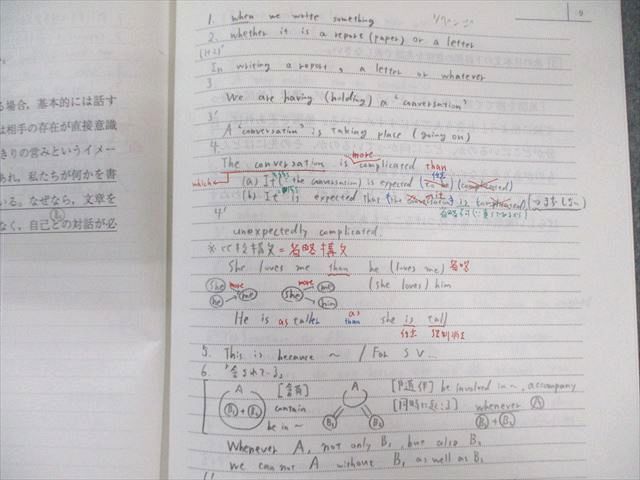 る場合,基本的には話す
は相手の存在が直接意識
きりの営みというイメー
あれ,私たちが何かを書
いる。なぜなら,文章を
なく,自己との対話が必
9
1. when we write something
2. whether it is a report (paper) or a letter
(1+2)'
In writing a report, a letter or whatever
3.
We are having (holding) a "conversation"
3'
A "conversation" is taking place (going on)
4.
more
The conversation is complicated than
which
(a) It (the conversation) is expected (to be) (complicated)
(b) It is expected that (the conversation is complicated)
4'
unexpectedly complicated.
※比較構文=省略構文
She loves me than he (loves me) 省略
She more me he
She more me him
(she loves) him
He is as taller as than she is tall
5. This is because ~ / For S V...
6. 「含まれている」
A B1 + B2
[含有]
contain
be in ~
A B1 B2
be involved in ~, accompany
[同時に起こる] whenever A
B1 + B2
Whenever A, not only B1 but also B2
We can not A without B1 as well as B2